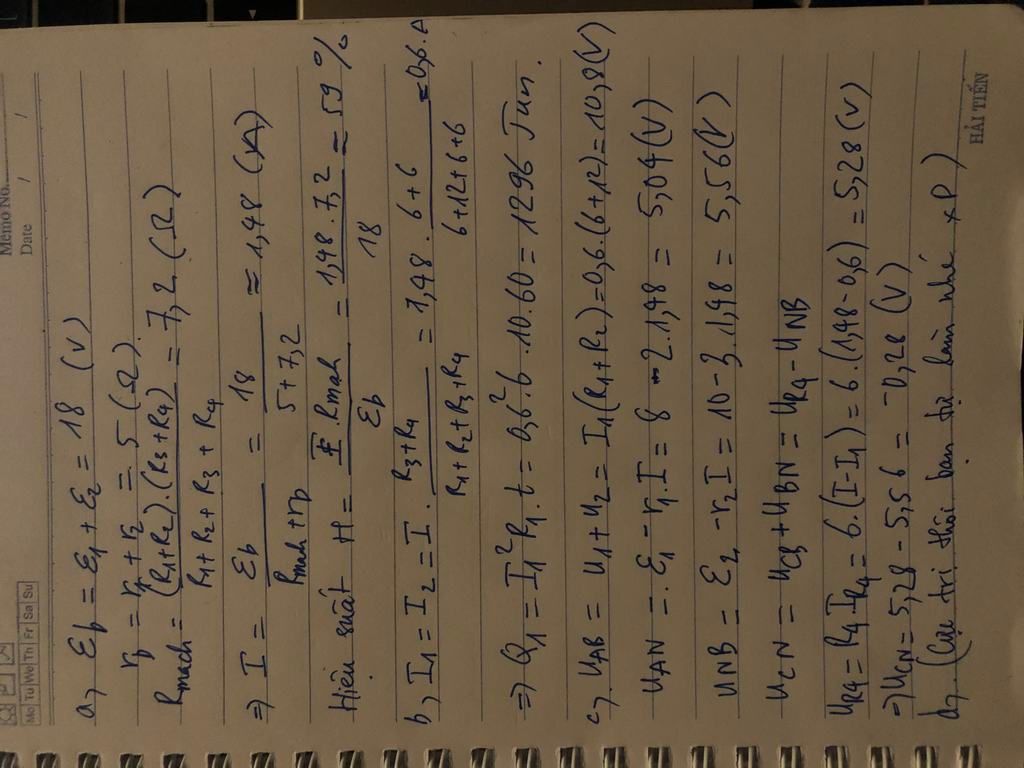 Memo No.
Date / /
Mo Tu We Th Fr Sa Su
a, Eb = E1 + E2 = 18 (V)
rb = r1 + r2 = 5 (Ω)
Rmạch = (R1+R2).(R3+R4) / R1+R2+R3+R4 = 7,2 (Ω)
⇒ I = Eb / Rmạch+rb = 18 / 5+7,2 ≈ 1,48 (A)
Hiệu suất H = I.Rmạch / Eb = 1,48.7,2 / 18 ≈ 59%
b, I1 = I2 = I. R3+R4 / R1+R2+R3+R4 = 1,48. 6+6 / 6+12+6+6 ≈ 0,6 A
⇒ Q1 = I1²R1.t = 0,6².6.10.60 = 1296 Jun.
c, UAB = U1 + U2 = I1(R1+R2) = 0,6.(6+12) = 10,8 (V)
UAN = E1 - r1I = 8 - 2.1,48 = 5,04 (V)
UNB = E2 - r2I = 10 - 3.1,48 = 5,56 (V)
UCN = UCB + UBN = UR4 - UNB
UR4 = R4IR4 = 6.(I-I1) = 6.(1,48-0,6) = 5,28 (V)
⇒ UCN = 5,28 - 5,56 = -0,28 (V)
d, (Cực trị thôi bạn tự làm nhé xP)
HẢI TIẾN